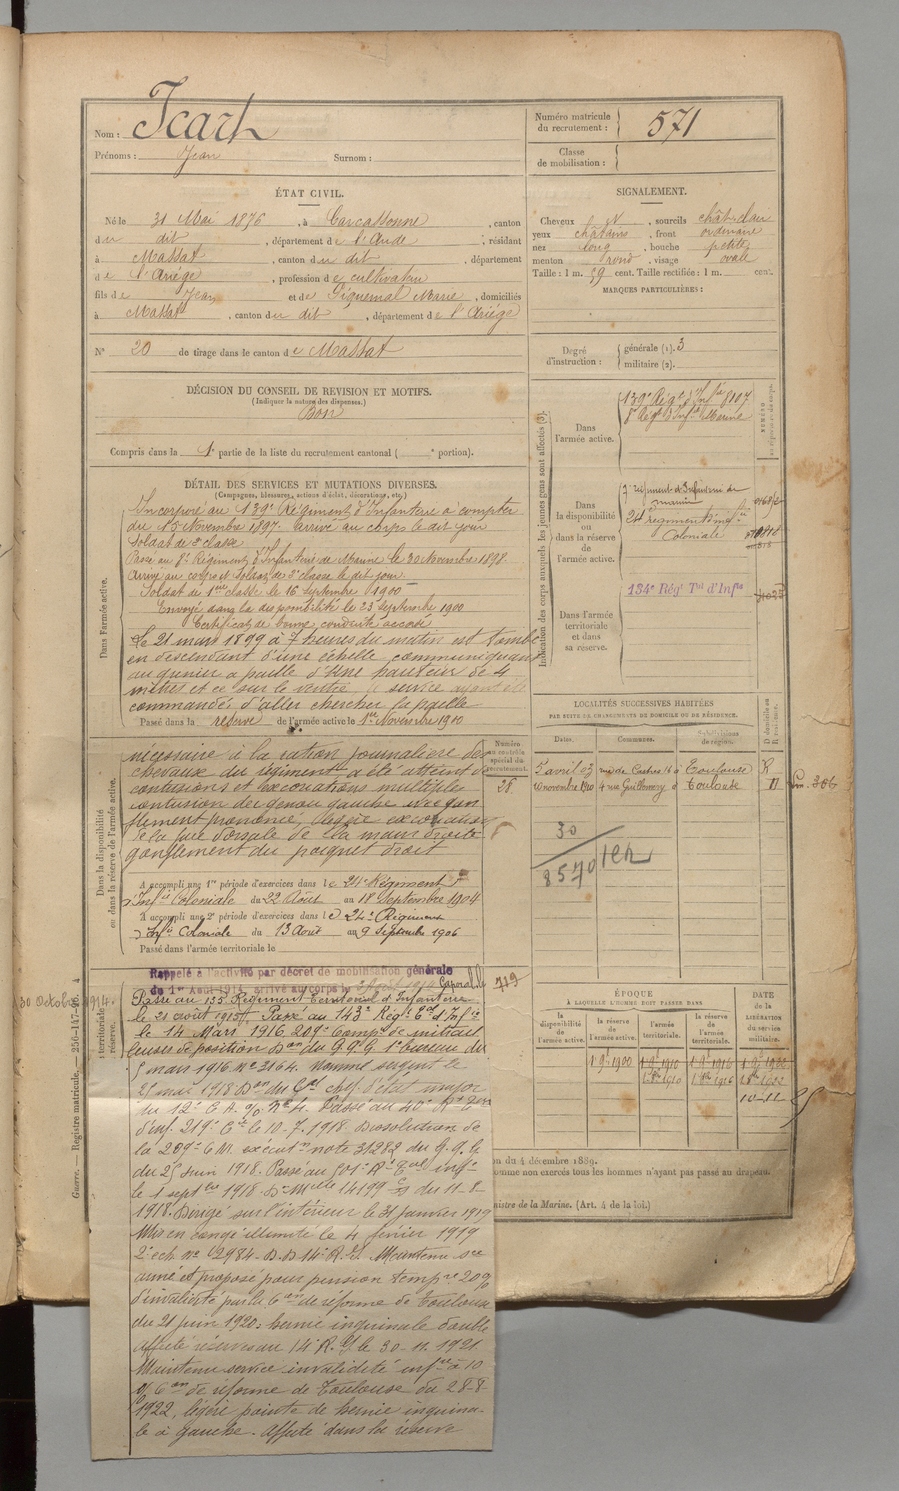 Nom : Icart
Prénoms : Jean Surnom :
Numéro matricule du recrutement : 571
Classe de mobilisation :
ÉTAT CIVIL.
Né le 31 Mai 1876, à Carcassonne, canton
du dit, département de l'Aude, résidant
à Massat, canton du dit, département
de l'Ariége, profession de cultivateur
fils de Jean et de Piquemal Marie, domiciliés
à Massat, canton du dit, département de l'Ariége
N° 20 de tirage dans le canton de Massat
SIGNALEMENT.
Cheveux N, sourcils chât-clair
yeux châtains, front ordinaire
nez long, bouche petite
menton rond, visage ovale
Taille : 1 m. 59 cent. Taille rectifiée : 1 m. cent.
MARQUES PARTICULIÈRES :
Degré d'instruction : générale (1). 3
militaire (2).
DÉCISION DU CONSEIL DE REVISION ET MOTIFS.
(Indiquer la nature des dispenses.)
Bon
Compris dans la 1e partie de la liste du recrutement cantonal ( e portion).
DÉTAIL DES SERVICES ET MUTATIONS DIVERSES.
(Campagnes, blessures, actions d'éclat, décorations, etc.)
Dans l'armée active.
Incorporé au 139e Régiment d'Infanterie à compter
du 15 Novembre 1897. Arrivé au corps le dit jour
Soldat de 2e classe
Passé au 8e Régiment d'Infanterie de Marine le 30 Novembre 1898.
Arrivé au corps et Soldat de 2e classe le dit jour.
Soldat de 1ère classe le 16 Septembre 1900
Envoyé dans la disponibilité le 23 Septembre 1900
Certificat de bonne conduite accordé.
Le 21 mars 1899 à 7 heures du matin est tombé
en descendant d'une échelle communiquant
au grenier à paille d'une hauteur de 4
mètres et ce sur le ventre, service ayant été
commandé d'aller chercher la paille
Passé dans la réserve de l'armée active le 1er Novembre 1900
Dans la disponibilité ou dans la réserve de l'armée active.
nécessaire à la ration journalière des
chevaux du régiment, a été atteint de
contusions et excoriations multiples
contusion du genou gauche avec gon
flement prononcé, légère excoriation
de la face dorsale de la main droite
gonflement du poignet droit
Numéro au contrôle spécial du recrutement.
28
A accompli une 1re période d'exercices dans le 24e Régiment
d'Infie Coloniale du 22 Août au 18 Septembre 1904
A accompli une 2e période d'exercices dans le 24e Régiment
d'Infie Coloniale du 13 Août au 9 Septembre 1906
Passé dans l'armée territoriale le
Rappelé à l'activité par décret de mobilisation générale
du 1er Août 1914, arrivé au corps le Août 1914 Caporal le
719
30 Octobre 1914.
Passé au 135 Régiment Territorial d'Infanterie
le 21 août 1915. Passé au 143e Régt Tal d'Infie
le 14 Mars 1916, 209e Compie de mitrail
leuses de position Don du G.Q.G. 1er bureau du
5 mars 1916 No 2164. Nommé sergent le
25 mai 1918 Don du Gal chef d'état major
du 12e C.A. Passé au 40e Rt Ter
d'inf. 219e Cie le 10-7-1918. Dissolution de
la 209e C.M. exécution note 31282 du G.Q.G
du 25 juin 1918. Passé au 501e Rt Tal inf
le 1 septbre 1918. 14199 du 11-8
1918. Dirigé sur l'intérieur le 31 janvier 1919
Mis en congé illimité le 4 février 1919
2e ech. No 2984. D.D 14e R.I. Maintenu sce
armé et proposé pour pension tempre 20%
d'invalidité par la Con de réforme de Toulouse
du 21 juin 1920 : hernie inguinale double
affecté réserve au 14e R.I. le 30-11-1921
Maintenu service invalidité infre à 10
% Con de réforme de Toulouse du 28-8
1922, légère pointe de hernie inguina-
le à gauche. Affecté dans la réserve
Indication des corps auxquels les jeunes gens sont affectés (3).
Dans l'armée active.
139e Régt d'Infie 8107
8e Régt d'Infie Marine
Dans la disponibilité ou dans la réserve de l'armée active.
7e régiment d'Infanterie de marine
24e régiment d'infie Coloniale
Dans l'armée territoriale et dans sa réserve.
134e Régt Tal d'Infie
LOCALITÉS SUCCESSIVES HABITÉES
PAR SUITE DE CHANGEMENTS DE DOMICILE OU DE RÉSIDENCE.
Dates. Communes. Subdivisions de région. D domicile ou R résidence.
5 avril 03 rue de Castres 16 à Toulouse R
novembre 1910 4 rue Guilhemery à Toulouse
30
8570
ÉPOQUE
À LAQUELLE L'HOMME DOIT PASSER DANS
la disponibilité de l'armée active. la réserve de l'armée active. l'armée territoriale. la réserve de l'armée territoriale.
DATE de la LIBÉRATION du service militaire.
1 9bre 1900 1 9bre 1910 1 9bre 1916 1 9bre 1922
1 8bre 1910 1 8bre 1916
on du 4 décembre 1889.
omme non exercés tous les hommes n'ayant pas passé au drapeau.
nistre de la Marine. (Art. 4 de la loi.)
Guerre. — Registre matricule. — 256-147-96. 4